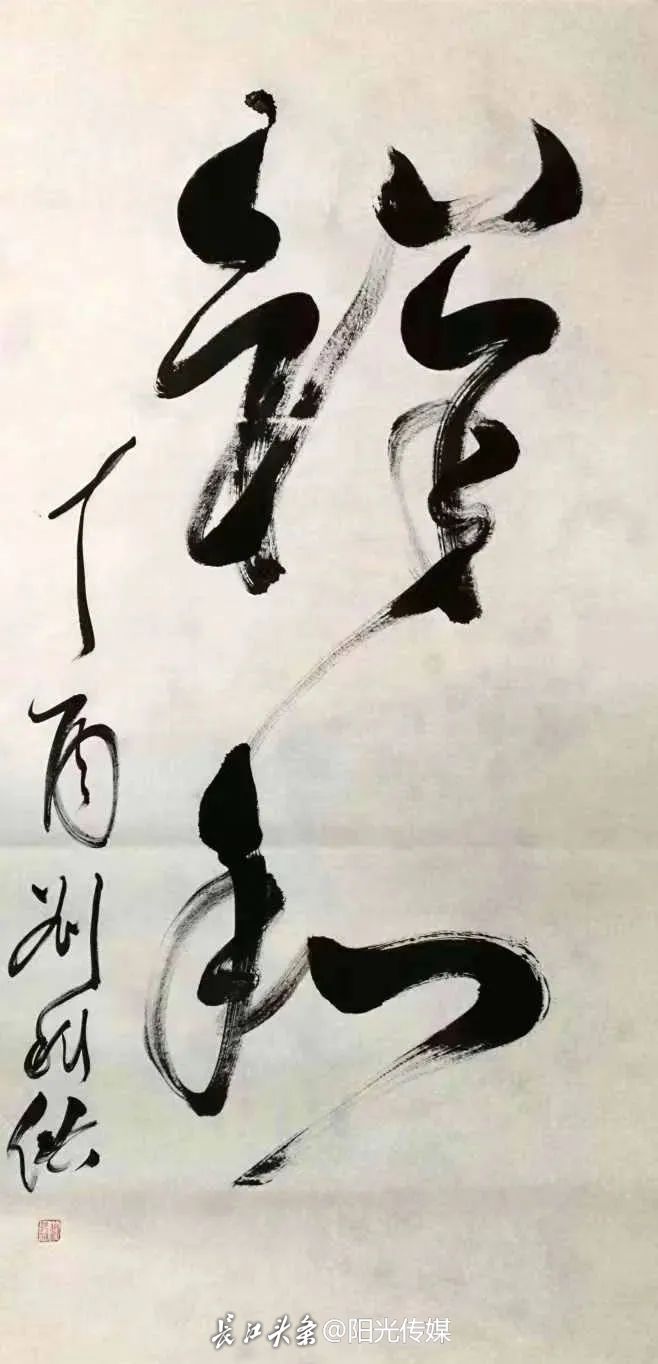 祥和
丁酉刘
长江头条 @阳光传媒